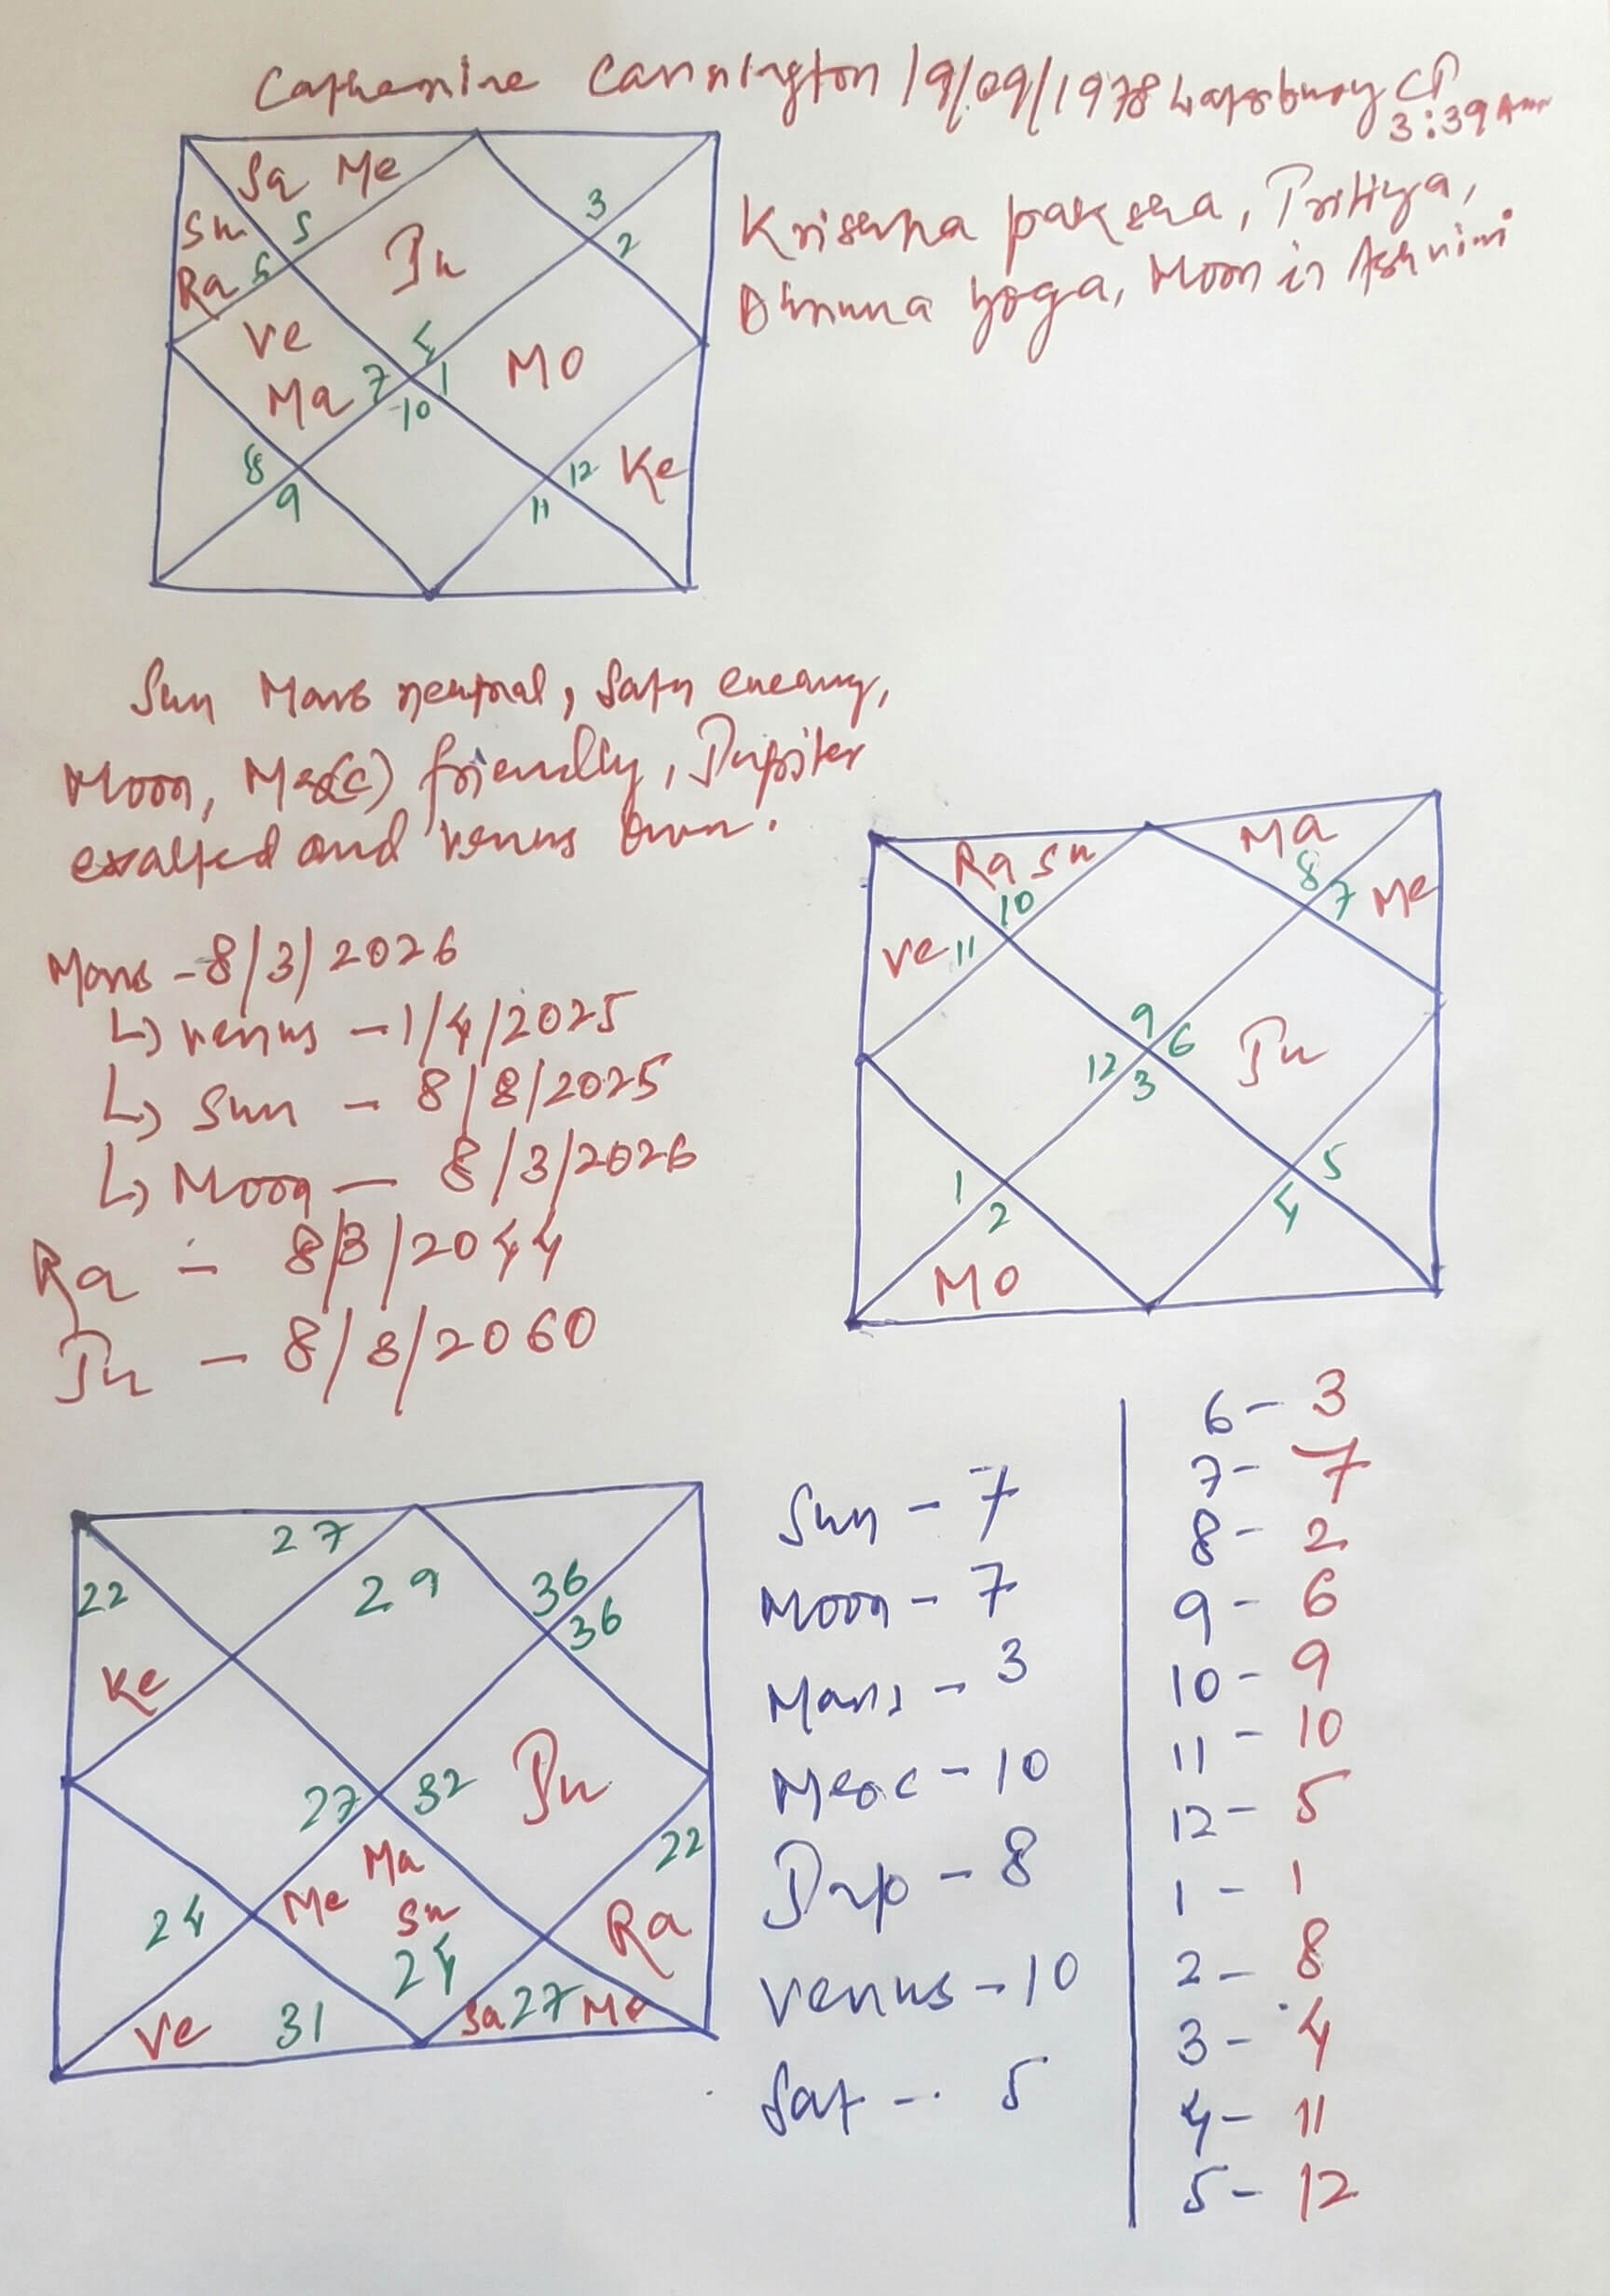 Catherine Cannington 19/09/1978 Waterbury CT
3:39 Am
Sa Me
Su 5
Ra 6
Ju
3
2
Ve
Ma 7
4
1
10
Mo
8
9
12 Ke
11
Krishna paksha, Tritiya,
Dhruva yoga, Moon in Ashvini
Sun Mars neutral, Satn enemy,
Moon, Mer(c) friendly, Jupiter
exalted and Venus own.
Mars - 8/3/2026
↳ Venus - 1/4/2025
↳ Sun - 8/8/2025
↳ Moon - 8/3/2026
Ra - 8/3/2044
Ju - 8/3/2060
Ra Su
10
Ma
8
7 Me
Ve 11
9
12 6
3
Ju
1
2
Mo
5
4
27
22
29
36
36
Ke
27 32
Ju
Ma
Me
Su
24
24
22
Ra
Ve 31
Sa 27 Mo
Sun - 7
Moon - 7
Mars - 3
Merc - 10
Jup - 8
Venus - 10
Sat - 5
6 - 3
7 - 7
8 - 2
9 - 6
10 - 9
11 - 10
12 - 5
1 - 1
2 - 8
3 - 4
4 - 11
5 - 12